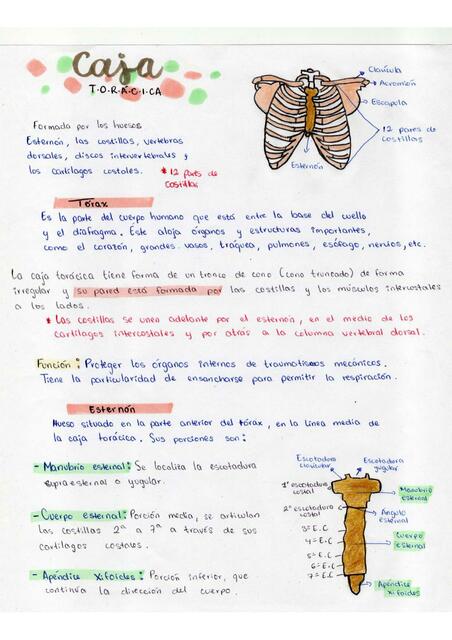 Caja
T·O·R·Á·C·I·C·A
Clavícula
Acromion
Escápula
12 pares de
costillas
Esternón
Formada por los huesos
Esternón, las costillas, vertebras
dorsales, discos intervertebrales y
los cartílagos costales.
* 12 pares de
costillas
Tórax
Es la parte del cuerpo humano que está entre la base del cuello
y el diafragma. Este aloja órganos y estructuras importantes,
como el corazón, grandes vasos, traquea, pulmones, esófago, nervios, etc.
La caja torácica tiene forma de un tronco de cono (cono truncado) de forma
irregular y su pared está formada por las costillas y los músculos intercostales
a los lados.
* Las costillas se unen adelante por el esternón, en el medio de los
cartílagos intercostales y por atrás a la columna vertebral dorsal.
Función: Proteger los órganos internos de traumatismos mecánicos.
Tiene la particularidad de ensancharse para permitir la respiración.
Esternón
Hueso situado en la parte anterior del tórax, en la línea media de
la caja torácica. Sus porciones son:
- Manubrio esternal: Se localiza la escotadura
supraesternal o yugular.
- Cuerpo esternal: Porción media, se articulan
las costillas 2ª a 7ª a través de sus
cartílagos costales.
- Apéndice xifoides: Porción inferior, que
continúa la dirección del cuerpo.
Escotadura
clavicular
Escotadura
yugular
1ª escotadura
costal
Manubrio
esternal
2ª escotadura
costal
Angulo
esternal
3ª E.C
4ª E.C
Cuerpo
esternal
5ª E.C
6ª E.C
7ª E.C
Apéndice
xifoides